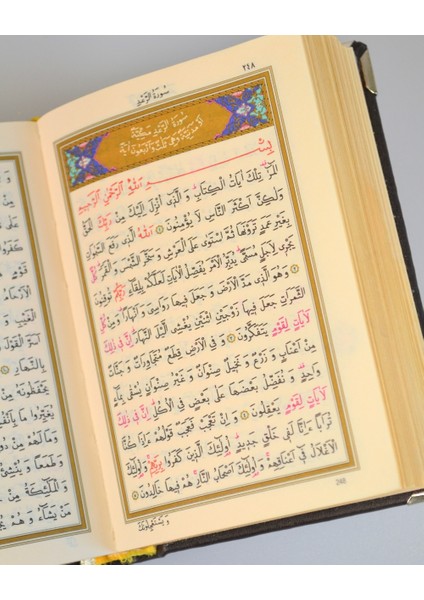 ٢٤٨
سُورَةُ الرَّعْدِ
سُورَةُ الرَّعْدِ مَكِّيَّةٌ
اَوْ مَدَنِيَّةٌ وَهِىَ ثَلٰثٌ وَاَرْبَعُونَ اٰيَةً
بِسْمِ اللّٰهِ الرَّحْمٰنِ الرَّحِيمِ
الٓمٓرٰ تِلْكَ اٰيَاتُ الْكِتَابِ وَ الَّذٖى اُنْزِلَ اِلَيْكَ مِنْ رَبِّكَ الْحَقُّ
وَلٰكِنَّ اَكْثَرَ النَّاسِ لَا يُؤْمِنُونَ ١ اَللّٰهُ الَّذٖى رَفَعَ السَّمٰوَاتِ
بِغَيْرِ عَمَدٍ تَرَوْنَهَا ثُمَّ اسْتَوٰى عَلَى الْعَرْشِ وَ سَخَّرَ الشَّمْسَ وَ الْقَمَرَ كُلٌّ
يَجْرٖى لِاَجَلٍ مُسَمًّى يُدَبِّرُ الْاَمْرَ يُفَصِّلُ الْاٰيَاتِ لَعَلَّكُمْ بِلِقَٓاءِ رَبِّكُمْ تُوقِنُونَ
٢ وَ هُوَ الَّذٖى مَدَّ الْاَرْضَ وَ جَعَلَ فٖيهَا رَوَاسِىَ وَ اَنْهَارًا وَ مِنْ كُلِّ
الثَّمَرَاتِ جَعَلَ فٖيهَا زَوْجَيْنِ اثْنَيْنِ يُغْشِى الَّيْلَ النَّهَارَ اِنَّ فٖى ذٰلِكَ
لَاٰيَاتٍ لِقَوْمٍ يَتَفَكَّرُونَ ٣ وَ فِى الْاَرْضِ قِطَعٌ مُتَجَاوِرَاتٌ وَ جَنَّاتٌ
مِنْ اَعْنَابٍ وَ زَرْعٌ وَ نَخٖيلٌ صِنْوَانٌ وَ غَيْرُ صِنْوَانٍ يُسْقٰى بِمَٓاءٍ
وَاحِدٍ وَ نُفَضِّلُ بَعْضَهَا عَلٰى بَعْضٍ فِى الْاُكُلِ اِنَّ فٖى ذٰلِكَ
لَاٰيَاتٍ لِقَوْمٍ يَعْقِلُونَ ٤ وَ اِنْ تَعْجَبْ فَعَجَبٌ قَوْلُهُمْ ءَاِذَا كُنَّا
تُرَابًا ءَاِنَّا لَفٖى خَلْقٍ جَدٖيدٍ اُولٰٓئِكَ الَّذٖينَ كَفَرُوا بِرَبِّهِمْ وَ اُولٰٓئِكَ
الْاَغْلَالُ فٖٓى اَعْنَاقِهِمْ وَ اُولٰٓئِكَ اَصْحَابُ النَّارِ هُمْ فٖيهَا خَالِدُونَ ٥
وَيَسْتَعْجِلُونَكَ
248
كَفَرُوا
قَوْمٍ
الْاَرْحَامُ
الْغَيْبِ وَ
اَسَرَّ الْقَوْلَ
بِالنَّهَارِ
يَحْفَظُونَهُ
يُغَيِّرُوا مَا
وَ مَا لَهُمْ مِنْ
وَ طَمَعًا وَ
وَ الْمَلٰٓئِكَةُ
مَنْ يَشَٓاءُ وَ هُمْ